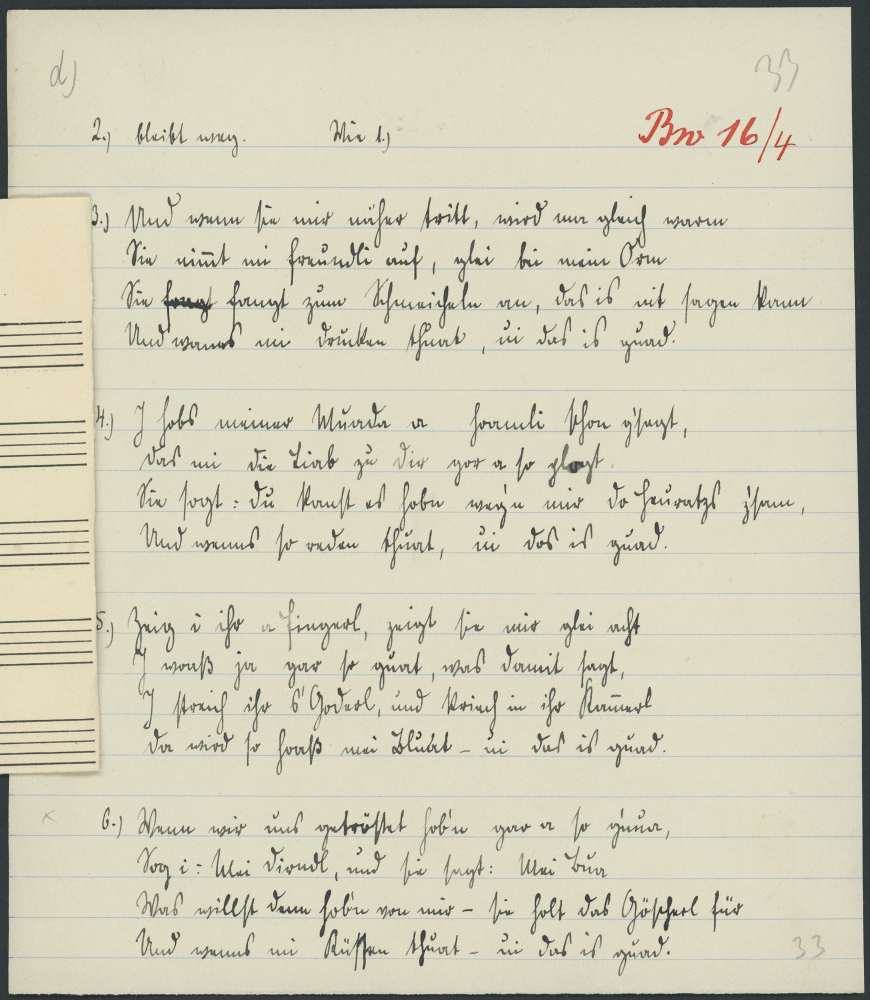 d)
33
2.) bleibt weg. Wie 1.)
Bw 16/4
3.) Und wenn sie mir näher tritt, wird ma gleich warm
Sie nimt mi freundli auf, glei bei mein Orm
Sie fangt zum Schmeicheln an, das is nit sagen kann
Und wanns mi drucken thuat, ui das is guad.
4.) J hobs meiner Muada a hoamli schon g'sagt,
das mi die Liab zu dir gor a so plogt.
Sie sogt: du kanst es hobn weg'n mir do Heuratzs z'sam,
Und wenns so reden thuat, ui dos is guad.
5.) Zeig i ihr a Fingerl, zeigt sie mir glei acht
J woaß ja gar so guat, was damit sagt,
J streich ihr s' Goderl, und kriech in ihr Kamerl
da wird so hoaß mei Bluat – ui das is guad.
6.) Wenn wir uns getröstet hob'n gar a so g'nua,
Sog i: Mei Diandl, und sie sagt: Mei Bua
Was willst denn hob'n von mir – sie holt das Göscherl für
Und wenns mi Küssen thuat – ui das is guad.
33